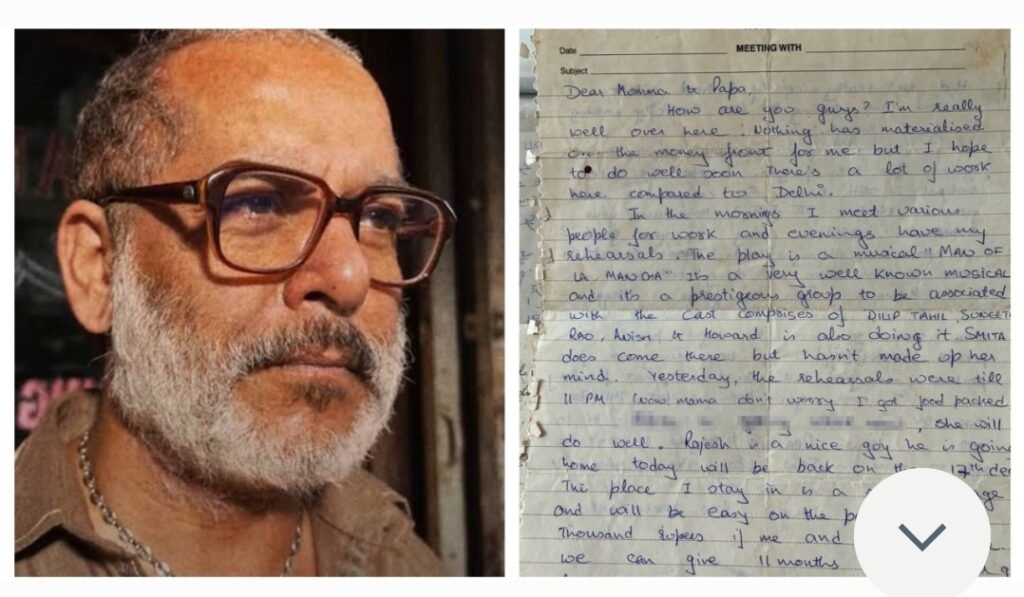 Date
MEETING WITH
Subject
Dear Momma & Papa,
How are you guys? I'm really
well over here. Nothing has materialised
on the money front for me but I hope
to do well soon There's a lot of work
here compared to Delhi.
In the mornings I meet various
people for work and evenings have my
rehearsals. The play is a musical "MAN OF
LA MANCHA" Its a very well known musical
and its a prestigeous group to be associated
with the cast comprises of DILIP TAHIL, SUNEETA
RAO, Avish & Howard is also doing it. SMITA
does come there but hasn't made up her
mind. Yesterday, the rehearsals were till
11 PM (wow mama don't worry I got food packed
, she will
do well. Rajesh is a nice guy he is going
home today will be back on 17th dec
This place I stay in is a
and will be easy on the
Thousand rupees if me and
we can give 11 months